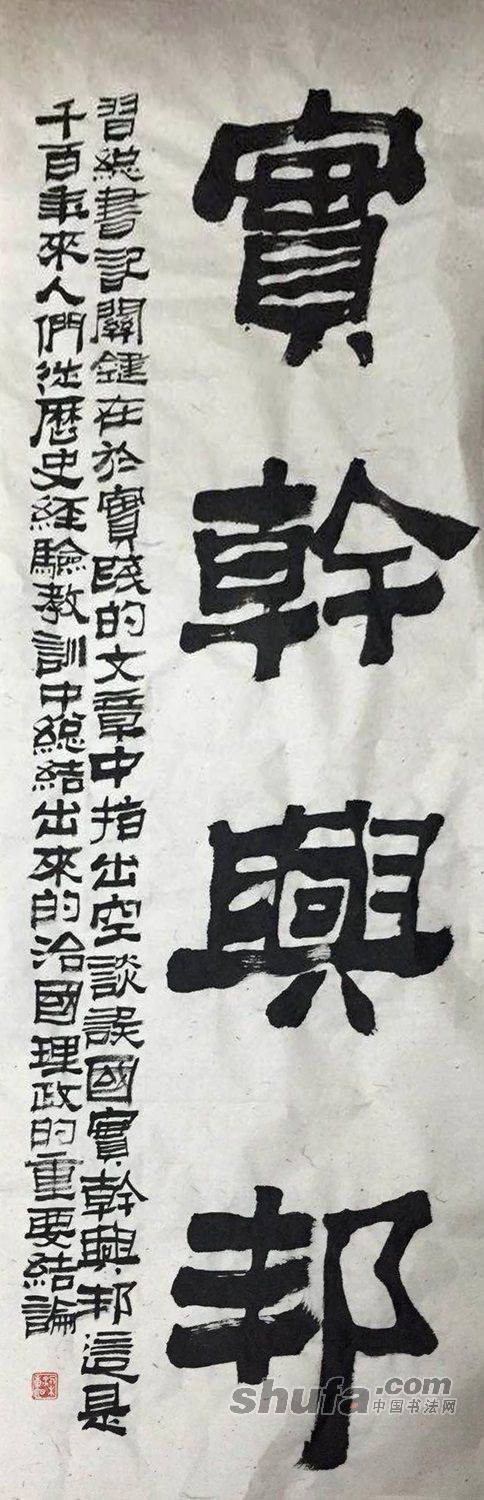 實幹興邦
習總書記關鍵在於實踐的文章中指出空談誤國實幹興邦這是
千百年來人們從歷史經驗教訓中總結出來的治國理政的重要結論
shufa.com
中国书法网